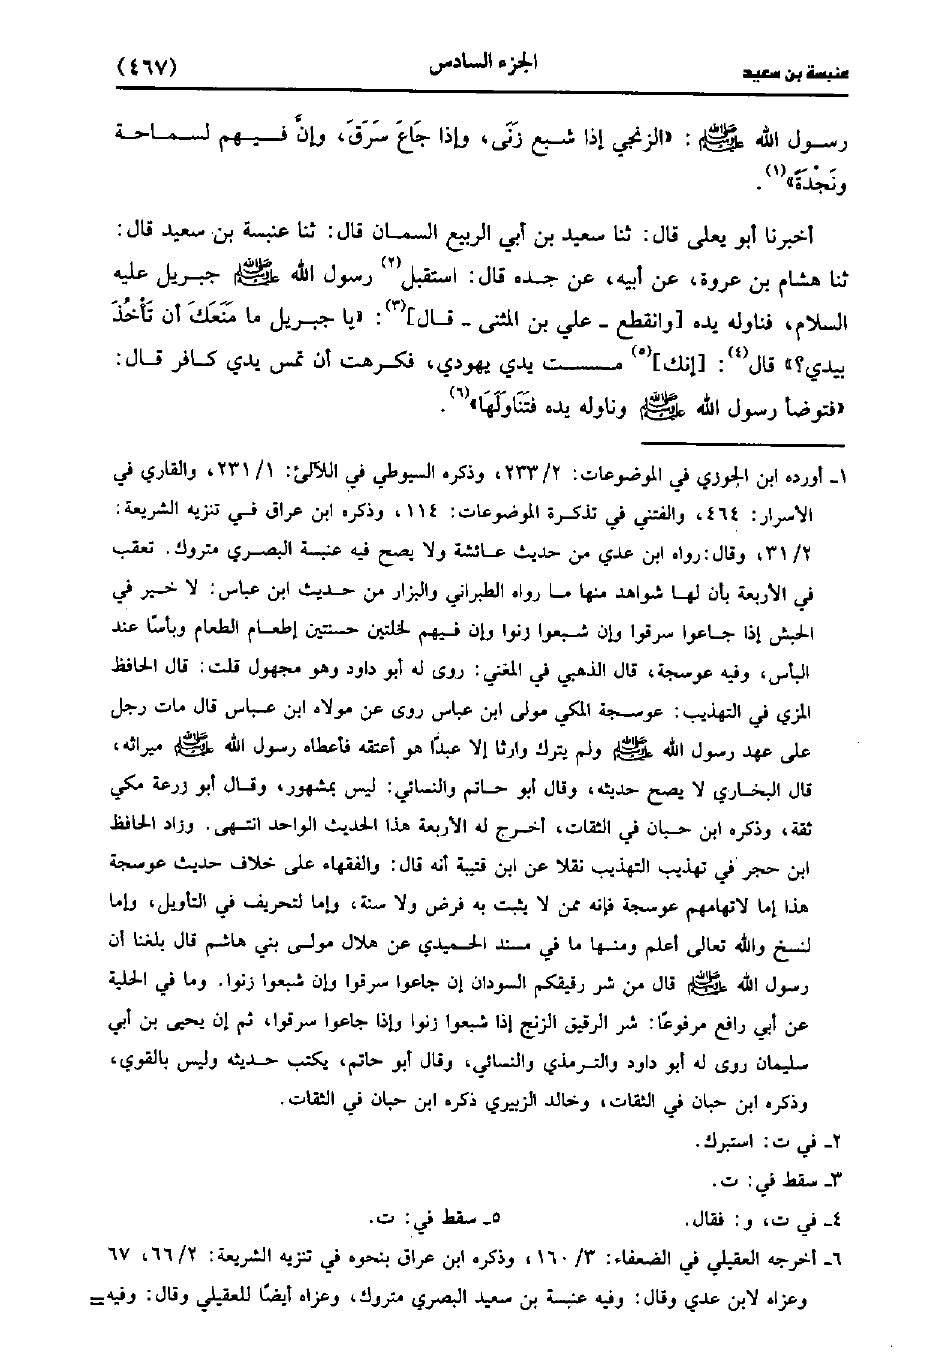 عنبسة بن سعيد
الجزء السادس
(٤٦٧)
رسول الله ﷺ : «الزنجي إذا شبع زَنَى، وإذا جَاعَ سَرَقَ، وإنَّ فيهم لسماحة
ونَجْدَةً»(١).
أخبرنا أبو يعلى قال: ثنا سعيد بن أبي الربيع السمان قال: ثنا عنبسة بن سعيد قال:
ثنا هشام بن عروة، عن أبيه، عن جده قال: استقبل(٢) رسول الله ﷺ جبريل عليه
السلام، فناوله يده [وانقطع ـ علي بن المثنى ـ قال](٣): «يا جبريل ما مَنَعَكَ أن تَأْخُذَ
بيدي؟» قال(٤): [إنك](٥) مست يدي يهودي، فكرهت أن تمس يدي كافر قال:
«فتوضأ رسول الله ﷺ وناوله يده فَتَنَاوَلَهَا»(٦).
١ـ أورده ابن الجوزي في الموضوعات: ٢/ ٢٣٣، وذكره السيوطي في اللآلئ: ١/ ٢٣١، والقاري في
الأسرار: ٤٦٤، والفتني في تذكرة الموضوعات: ١١٤، وذكره ابن عراق في تنزيه الشريعة:
٢/ ٣١، وقال:رواه ابن عدي من حديث عائشة ولا يصح فيه عنبسة البصري متروك. تعقب
في الأربعة بأن لها شواهد منها ما رواه الطبراني والبزار من حديث ابن عباس: لا خير في
الحبش إذا جاعوا سرقوا وإن شبعوا زنوا وإن فيهم لخلتين حسنتين إطعام الطعام وبأسًا عند
البأس، وفيه عوسجة، قال الذهبي في المغني: روى له أبو داود وهو مجهول قلت: قال الحافظ
المزي في التهذيب: عوسجة المكي مولى ابن عباس روى عن مولاه ابن عباس قال مات رجل
على عهد رسول الله ﷺ ولم يترك وارثا إلا عبدًا هو أعتقه فأعطاه رسول الله ﷺ ميراثه،
قال البخاري لا يصح حديثه، وقال أبو حاتم والنسائي: ليس بمشهور، وقال أبو زرعة مكي
ثقة، وذكره ابن حبان في الثقات، أخرج له الأربعة هذا الحديث الواحد انتهى. وزاد الحافظ
ابن حجر في تهذيب التهذيب نقلا عن ابن قتيبة أنه قال: والفقهاء على خلاف حديث عوسجة
هذا إما لاتهامهم عوسجة فإنه ممن لا يثبت به فرض ولا سنة، وإما لتحريف في التأويل، وإما
لنسخ والله تعالى أعلم ومنها ما في مسند الحميدي عن هلال مولى بني هاشم قال بلغنا أن
رسول الله ﷺ قال من شر رقيقكم السودان إن جاعوا سرقوا وإن شبعوا زنوا. وما في الحلية
عن أبي رافع مرفوعًا: شر الرقيق الزنج إذا شبعوا زنوا وإذا جاعوا سرقوا، ثم إن يحيى بن أبي
سليمان روى له أبو داود والترمذي والنسائي، وقال أبو حاتم، يكتب حديثه وليس بالقوي،
وذكره ابن حبان في الثقات، وخالد الزبيري ذكره ابن حبان في الثقات.
٢ـ في ت: استبرك.
٣ـ سقط في: ت.
٤ـ في ت، و: فقال.
٥ـ سقط في: ت.
٦ـ أخرجه العقيلي في الضعفاء: ٣/ ١٦٠، وذكره ابن عراق بنحوه في تنزيه الشريعة: ٢/ ٦٦، ٦٧
وعزاه لابن عدي وقال: وفيه عنبسة بن سعيد البصري متروك، وعزاه أيضًا للعقيلي وقال: وفيه=